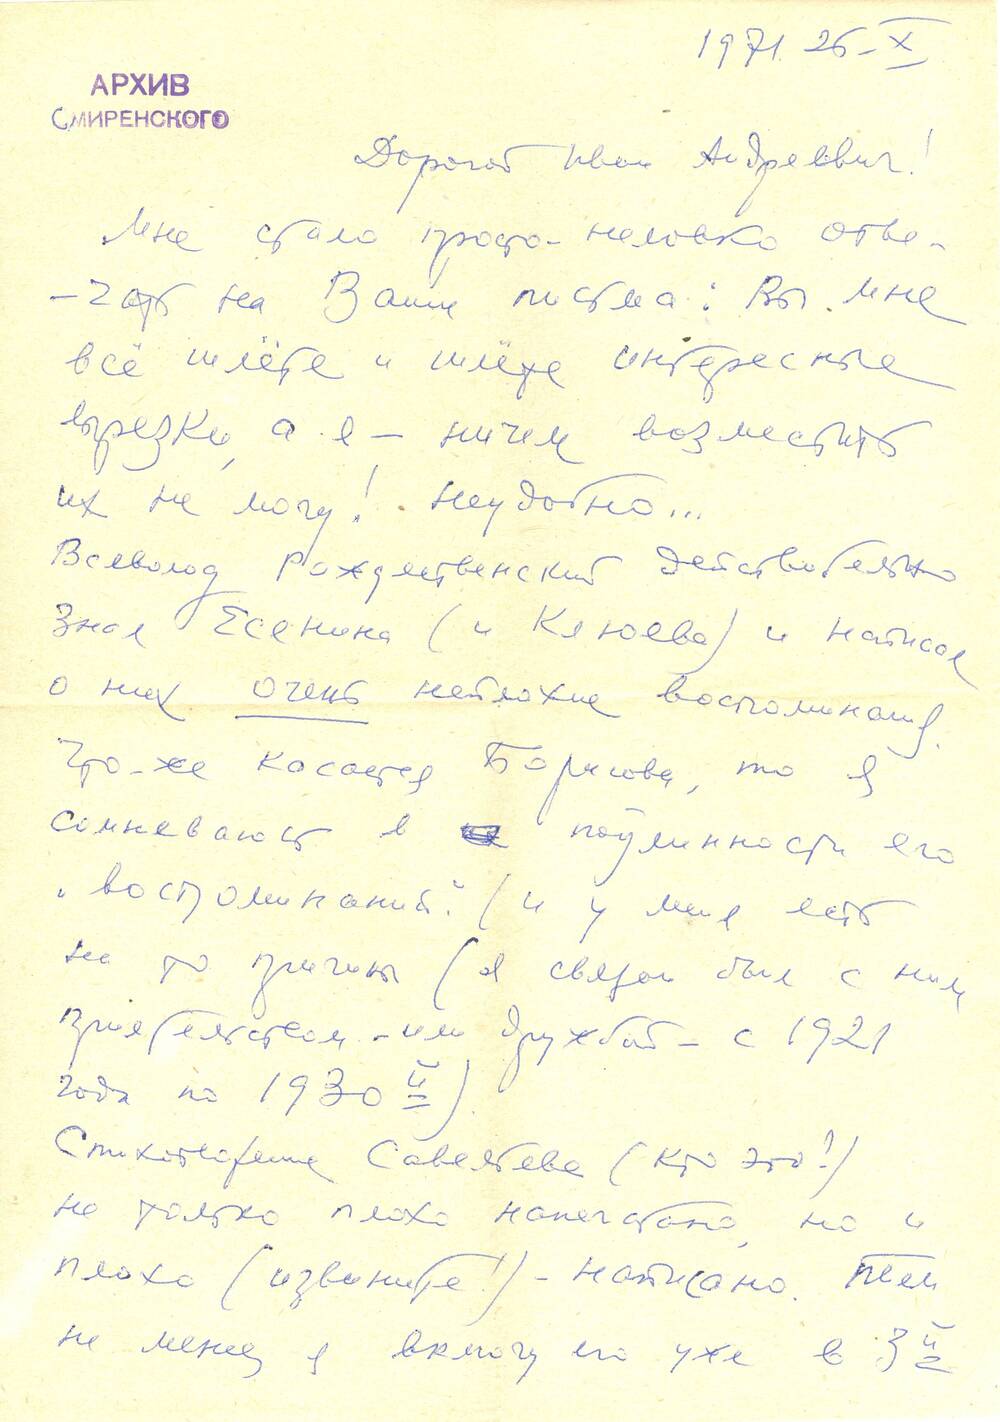 1971. 26-X
АРХИВ
СМИРЕНСКОГО
Дорогой Иван Андреевич!
Мне стало просто-неловко отве-
-чать на Ваши письма: Вы мне
всё шлёте и шлёте интересные
вырезки, а я – ничем возместить
их не могу! Неудобно...
Всеволод Рождественский действительно
знал Есенина (и Клюева) и написал
о них очень неплохие воспоминания.
Что-же касается Борисова, то я
сомневаюсь в подлинности его
„воспоминаний". (и у меня есть
на то причины (я связан был с ним
приятельством – или дружбой – с 1921
года по 1930й).
Стихотворение Савельева (кто это?)
не только плохо напечатано, но и
плохо (извините!) – написано. Тем
не менее я включу его уже в 3й